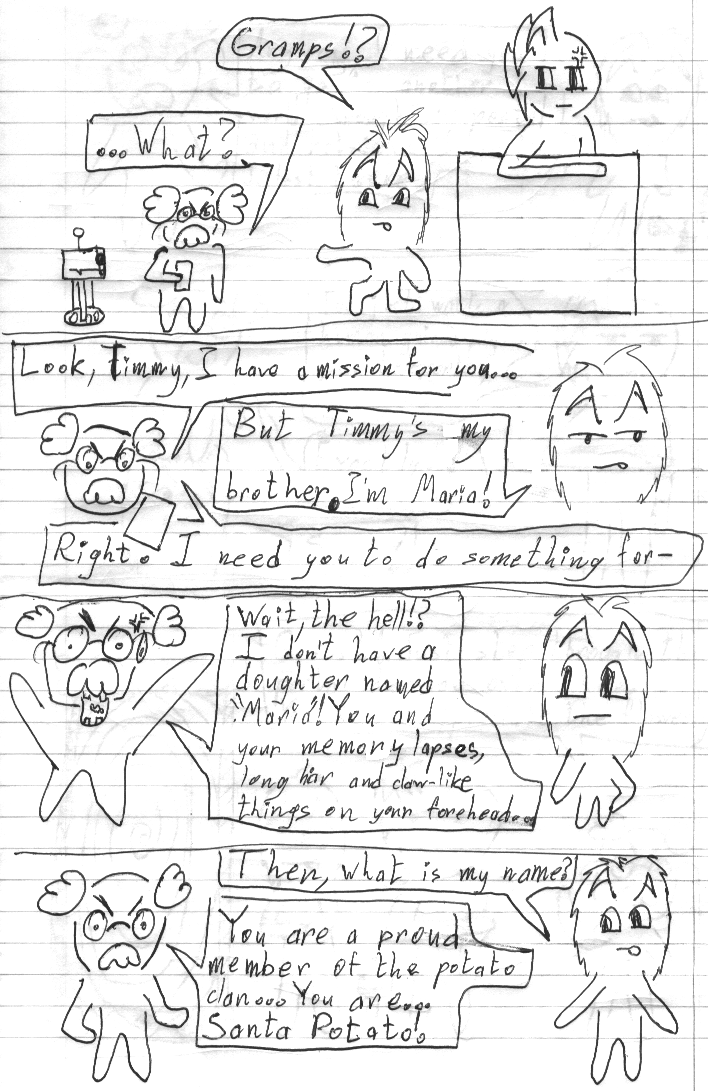 Gramps!?
...What?
Look, Timmy, I have a mission for you...
But Timmy's my
brother. I'm Maria!
Right. I need you to do something for-
Wait, the hell!?
I don't have a
doughter named
"Maria"! You and
your memory lapses,
long hair and claw-like
things on your forehead...
Then, what is my name?
You are a proud
member of the potato
clan... You are...
Santa Potato!